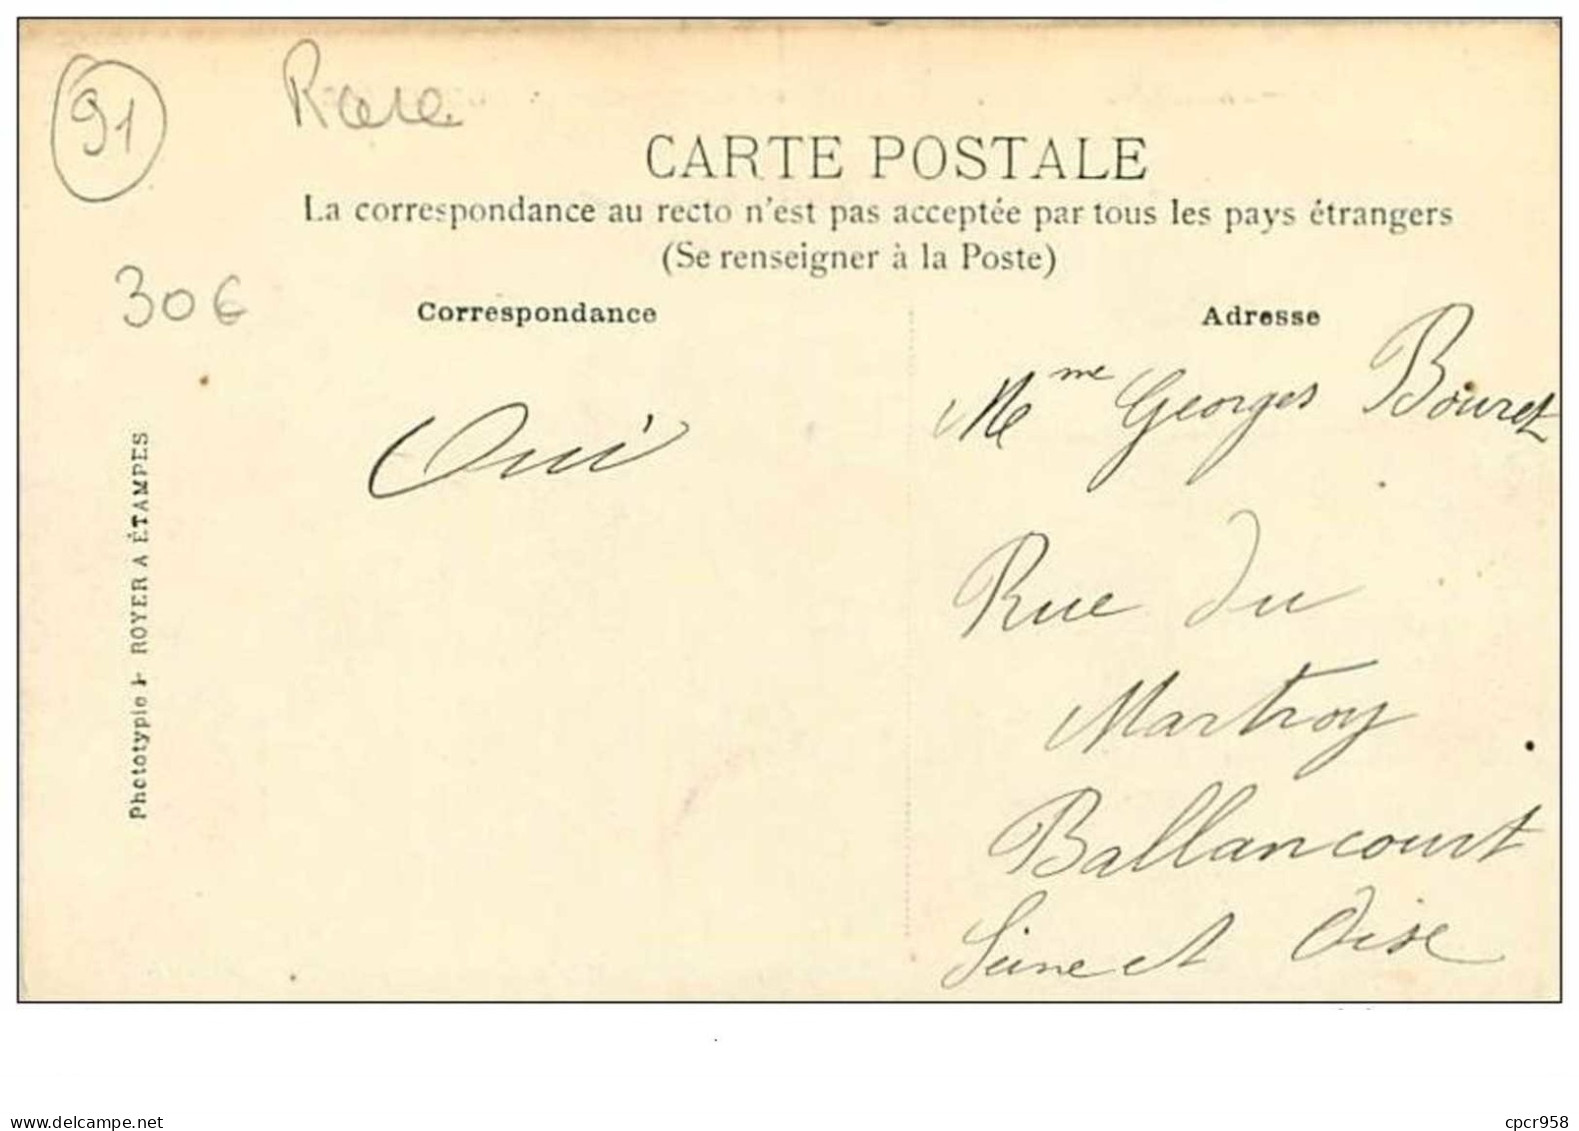 91
Rare
CARTE POSTALE
La correspondance au recto n'est pas acceptée par tous les pays étrangers
(Se renseigner à la Poste)
30€
Correspondance
Adresse
Oui
Mme Georges Bouret
Rue du
Martroy
Ballancourt
Seine et Oise
Phototypie ROYER A ÉTAMPES
www.delcampe.net
cpcr958